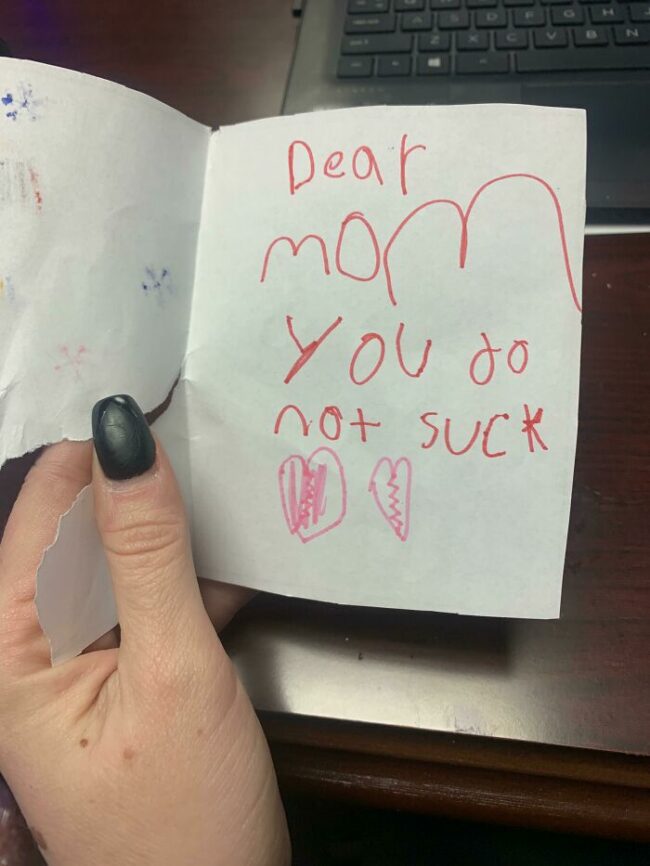 Dear
mom
You do
not suck
A S D F G H
Z X C V B N